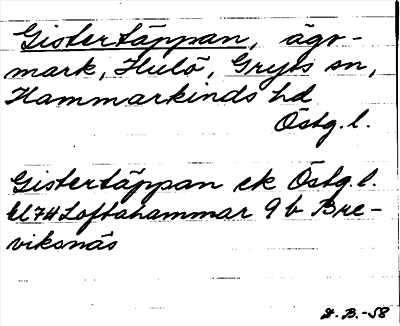 Gistertäppan, ägo-
mark, Hulö, Gryts sn,
Hammarkinds hd
Östg. l.
Gistertäppan ek Östg. l.
Loftahammar 9 b Bre-
viksnäs
B. -58